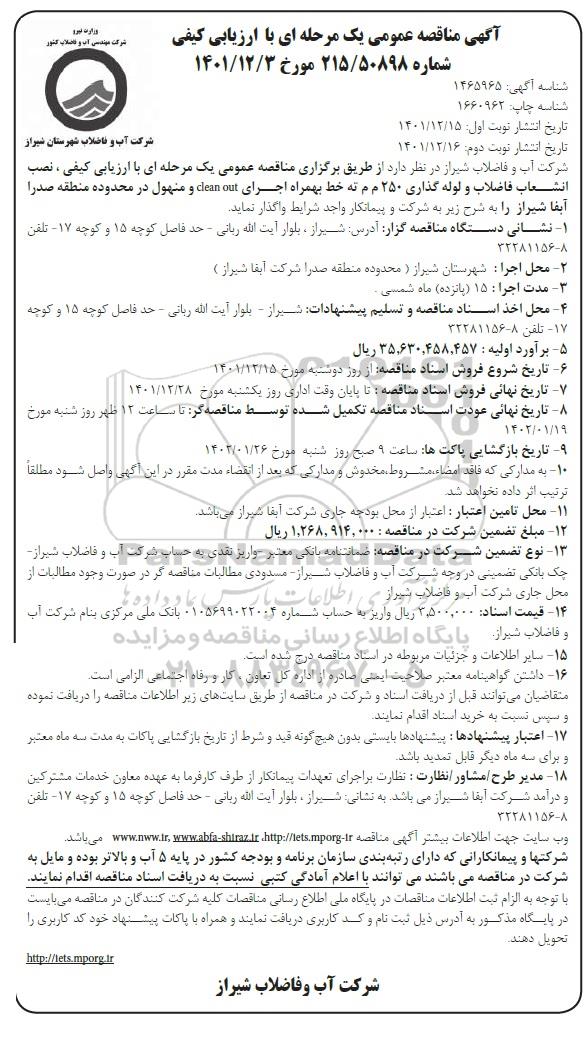 وزارت نیرو
شرکت مهندسی آب و فاضلاب کشور
شرکت آب و فاضلاب شهرستان شیراز
آگهی مناقصه عمومی یک مرحله ای با ارزیابی کیفی
شماره ۲۱۵/۵۰۸۹۸ مورخ ۱۴۰۱/۱۲/۳
شناسه آگهی: ۱۴۶۵۹۶۵
شناسه چاپ: ۱۶۶۰۹۶۲
تاریخ انتشار نوبت اول: ۱۴۰۱/۱۲/۱۵
تاریخ انتشار نوبت دوم: ۱۴۰۱/۱۲/۱۶
شرکت آب و فاضلاب شیراز در نظر دارد از طریق برگزاری مناقصه عمومی یک مرحله ای با ارزیابی کیفی ، نصب
انشعاب فاضلاب و لوله گذاری ۲۵۰ م م ته خط بهمراه اجرای clean out و منهول در محدوده منطقه صدرا
آبفا شیراز را به شرح زیر به شرکت و پیمانکار واجد شرایط واگذار نماید.
۱- نشانی دستگاه مناقصه گزار: آدرس: شیراز ، بلوار آیت الله ربانی - حد فاصل کوچه ۱۵ و کوچه ۱۷- تلفن
۳۲۲۸۱۱۵۶-۸
۲- محل اجرا : شهرستان شیراز ( محدوده منطقه صدرا شرکت آبفا شیراز )
۳- مدت اجرا : ۱۵ (پانزده) ماه شمسی .
۴- محل اخذ اسناد مناقصه و تسلیم پیشنهادات: شیراز - بلوار آیت الله ربانی - حد فاصل کوچه ۱۵ و کوچه
۱۷- تلفن ۸-۳۲۲۸۱۱۵۶
۵- برآورد اولیه : ۳۵,۶۳۰,۴۵۸,۴۵۷ ریال
۶- تاریخ شروع فروش اسناد مناقصه: از روز دوشنبه مورخ ۱۴۰۱/۱۲/۱۵
۷- تاریخ نهائی فروش اسناد مناقصه : تا پایان وقت اداری روز یکشنبه مورخ ۱۴۰۱/۱۲/۲۸
۸- تاریخ نهائی عودت اسناد مناقصه تکمیل شده توسط مناقصه‌گر: تا ساعت ۱۲ ظهر روز شنبه مورخ
۱۴۰۲/۰۱/۱۹
۹- تاریخ بازگشایی پاکت ها: ساعت ۹ صبح روز شنبه مورخ ۱۴۰۲/۰۱/۲۶
۱۰- به مدارکی که فاقد امضاء،مشروط،مخدوش و مدارکی که بعد از انقضاء مدت مقرر در این آگهی واصل شود مطلقاً
ترتیب اثر داده نخواهد شد.
۱۱- محل تامین اعتبار : اعتبار از محل بودجه جاری شرکت آبفا شیراز می‌باشد.
۱۲- مبلغ تضمین شرکت در مناقصه : ۱,۲۶۸,۹۱۴,۰۰۰ ریال
۱۳- نوع تضمین شرکت در مناقصه: ضمانتنامه بانکی معتبر -واریز نقدی به حساب شرکت آب و فاضلاب شیراز-
چک بانکی تضمینی در وجه شرکت آب و فاضلاب شیراز- مسدودی مطالبات مناقصه گر در صورت وجود مطالبات از
محل جاری شرکت آب و فاضلاب شیراز
۱۴- قیمت اسناد: ۳,۵۰۰,۰۰۰ ریال واریز به حساب شماره ۰۱۰۵۶۹۹۰۲۲۰۰۴ بانک ملی مرکزی بنام شرکت آب
و فاضلاب شیراز.
۱۵- سایر اطلاعات و جزئیات مربوطه در اسناد مناقصه درج شده است.
۱۶- داشتن گواهینامه معتبر صلاحیت ایمنی صادره از اداره کل تعاون ، کار و رفاه اجتماعی الزامی است.
متقاضیان می‌توانند قبل از دریافت اسناد و شرکت در مناقصه از طریق سایت‌های زیر اطلاعات مناقصه را دریافت نموده
و سپس نسبت به خرید اسناد اقدام نمایند.
۱۷- اعتبار پیشنهادها : پیشنهادها بایستی بدون هیچ‌گونه قید و شرط از تاریخ بازگشایی پاکات به مدت سه ماه معتبر
و برای سه ماه دیگر قابل تمدید باشد.
۱۸- مدیر طرح/مشاور/نظارت : نظارت براجرای تعهدات پیمانکار از طرف کارفرما به عهده معاون خدمات مشترکین
و درآمد شرکت آبفا شیراز می باشد. به نشانی: شیراز ، بلوار آیت الله ربانی - حد فاصل کوچه ۱۵ و کوچه ۱۷- تلفن
۳۲۲۸۱۱۵۶-۸
وب سایت جهت اطلاعات بیشتر آگهی مناقصه www.nww.ir, www.abfa-shiraz.ir ،http://iets.mporg-ir می‌باشد.
شرکتها و پیمانکارانی که دارای رتبه‌بندی سازمان برنامه و بودجه کشور در پایه ۵ آب و بالاتر بوده و مایل به
شرکت در مناقصه می باشند می توانند با اعلام آمادگی کتبی نسبت به دریافت اسناد مناقصه اقدام نمایند.
با توجه به الزام ثبت اطلاعات مناقصات در پایگاه ملی اطلاع رسانی مناقصات کلیه شرکت کنندگان در مناقصه می‌بایست
در پایگاه مذکور به آدرس ذیل ثبت نام و کد کاربری دریافت نمایند و همراه با پاکات پیشنهاد خود کد کاربری را
تحویل دهند.
http://iets.mporg.ir
شرکت آب وفاضلاب شیراز
ParsNamadData
پایگاه اطلاع رسانی مناقصه و مزایده
۰۲۱-۸۸۳۴۹۶۷۰-۵